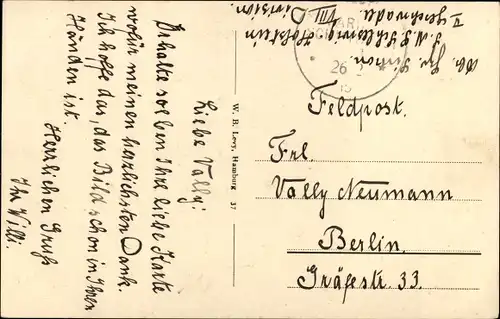 Liebe Vally!
Erhalte soeben Ihre liebe Karte
wofür meinen herzlichsten Dank.
Ich hoffe das, das Bild schon in Ihren
Händen ist.
Herzlichen Gruß
Ihr Willi.
W. B. Levy, Hamburg 37
S.M.S. Schleswig Holstein
VIII Division.
V Geschwader
26
Feldpost.
Frl.
Vally Neumann
Berlin.
Gräfestr. 33.